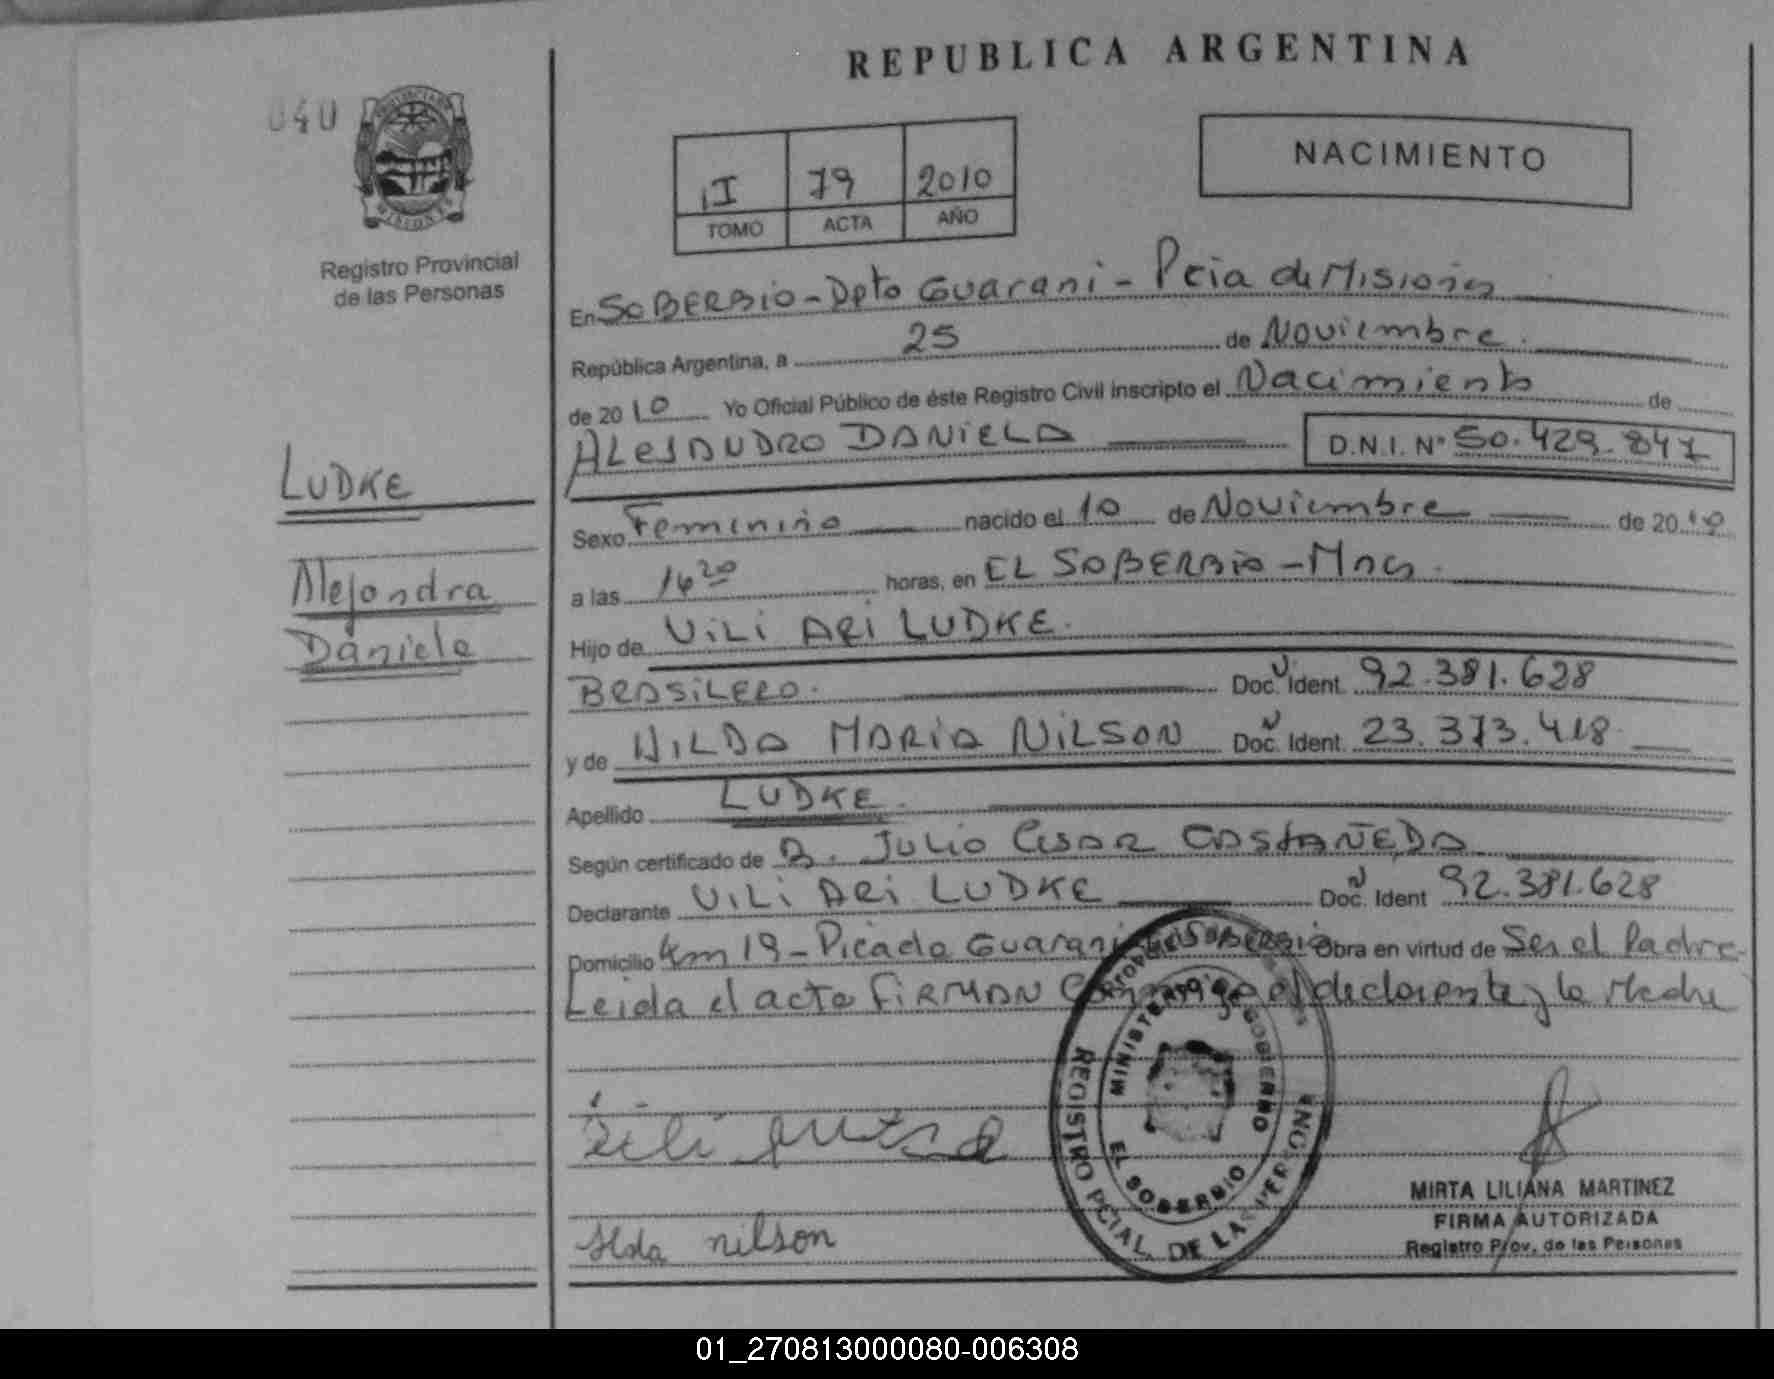 REPUBLICA ARGENTINA
040
NACIMIENTO
II 79 2010
TOMO ACTA AÑO
Registro Provincial
de las Personas
En SOBERBIO - Dpto GUARANI - Pcia de Misiones
República Argentina, a 25 de Noviembre.
de 2010 Yo Oficial Público de éste Registro Civil inscripto el Nacimiento de
ALEJANDRO DANIELA D.N.I. Nº 50.429.847
LUDKE
Sexo Femenino nacido el 10 de Noviembre de 2010
a las 16 20 horas, en EL SOBERBIO - Mnes.
Alejandra
Daniela
Hijo de VILI ARI LUDKE.
BRASILERO. Doc. Ident. 92.381.628
y de HILDA MARIA NILSON Doc. Ident. 23.373.418
Apellido LUDKE.
Según certificado de D. JULIO CESAR CASTAÑEDA
Declarante VILI ARI LUDKE Doc. Ident 92.381.628
Domicilio Km 19 - Picada Guarani El SOBERBIO Obra en virtud de Ser el Padre
Leida el acta FIRMAN Conmigo el declarante y la Madre
MINISTERIO DE GOBIERNO
REGISTRO PCIAL. DE LAS PERSONAS
EL SOBERBIO
MIRTA LILIANA MARTINEZ
FIRMA AUTORIZADA
Registro Prov. de las Personas
Ilda nilson
01_270813000080-006308